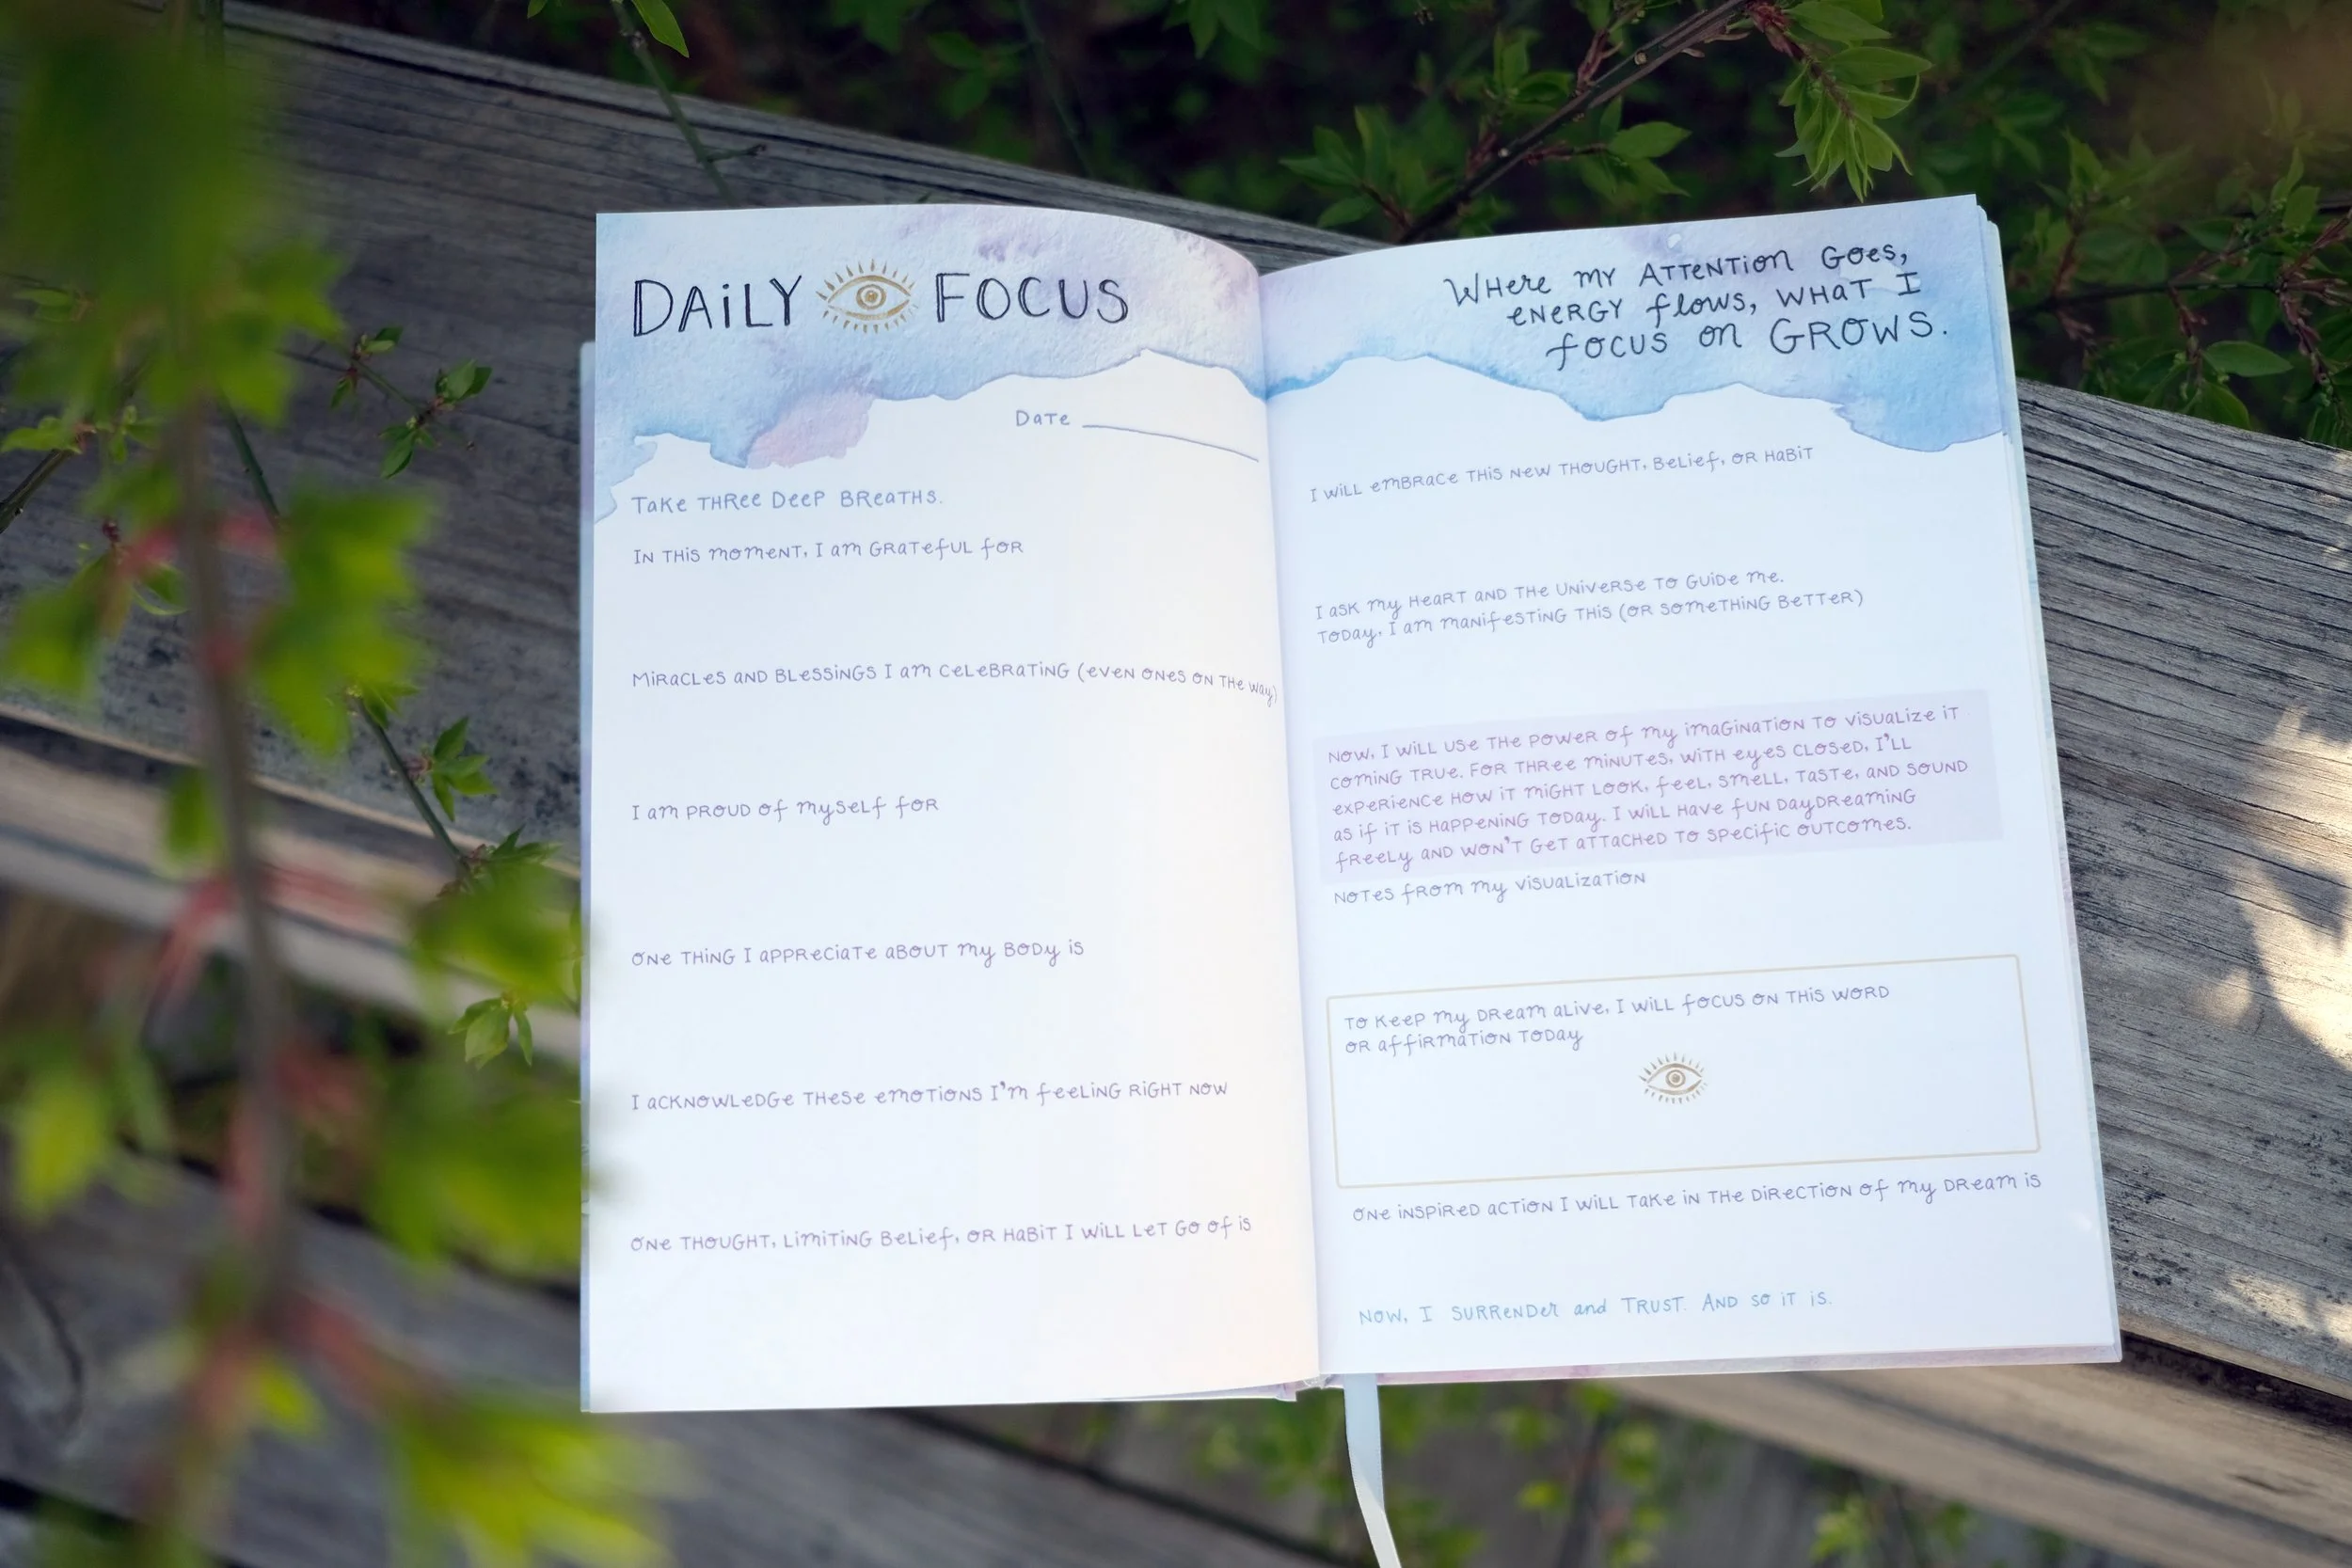 DAiLY FOCUS
Date
Take THRee Deep BReaTHS.
IN THiS momeNT, I am GRaTefUL foR
MiRaCLeS aND BLeSSiNGS I am CeLeBRaTiNG (eveN ONeS ON THe way)
I am PROUD of mySeLf foR
ONe THiNG I aPPReCiaTe aBOUT my BODy iS
I aCKNOWLeDGe THeSe emOTiONS I'm feeLiNG RiGHT NOW
ONe THOUGHT, LimiTiNG BeLief, OR HaBiT I WiLL LeT GO Of iS
WHere my ATTeNTion Goes,
eNeRGY flows, WHaT I
focus on GROWS.
I WiLL emBRaCe THiS New THOUGHT, BeLief, OR HaBiT
I aSK my HeaRT AND THe UNiVeRSe TO GUiDe me.
TODay, I am maNifeSTiNG THiS (OR SOmeTHiNG BeTTeR)
NOW, I WiLL USe THe POWeR Of my imaGiNaTiON TO ViSUaLiZe iT
COmiNG TRUe. FOR THRee miNUTeS, WiTH eyeS CLOSeD, I'LL
exPeRieNCe HOW iT miGHT LOOK, feeL, SmeLL, TaSTe, AND SOUND
aS if iT iS HaPPeNiNG TODay. I WiLL HaVe fUN DayDReamiNG
fReeLy AND WON'T GeT aTTaCHeD TO SPeCifiC OUTCOmeS.
NOTeS fROm my ViSUaLiZaTiON
TO KeeP my DReam aLiVe, I WiLL fOCUS ON THiS WORD
OR affiRmaTiON TODay
ONe iNSPiReD aCTiON I WiLL TaKe iN THe DiReCTiON Of my DReam iS
NOW, I SURReNDeR and TRUST. AND SO iT iS.